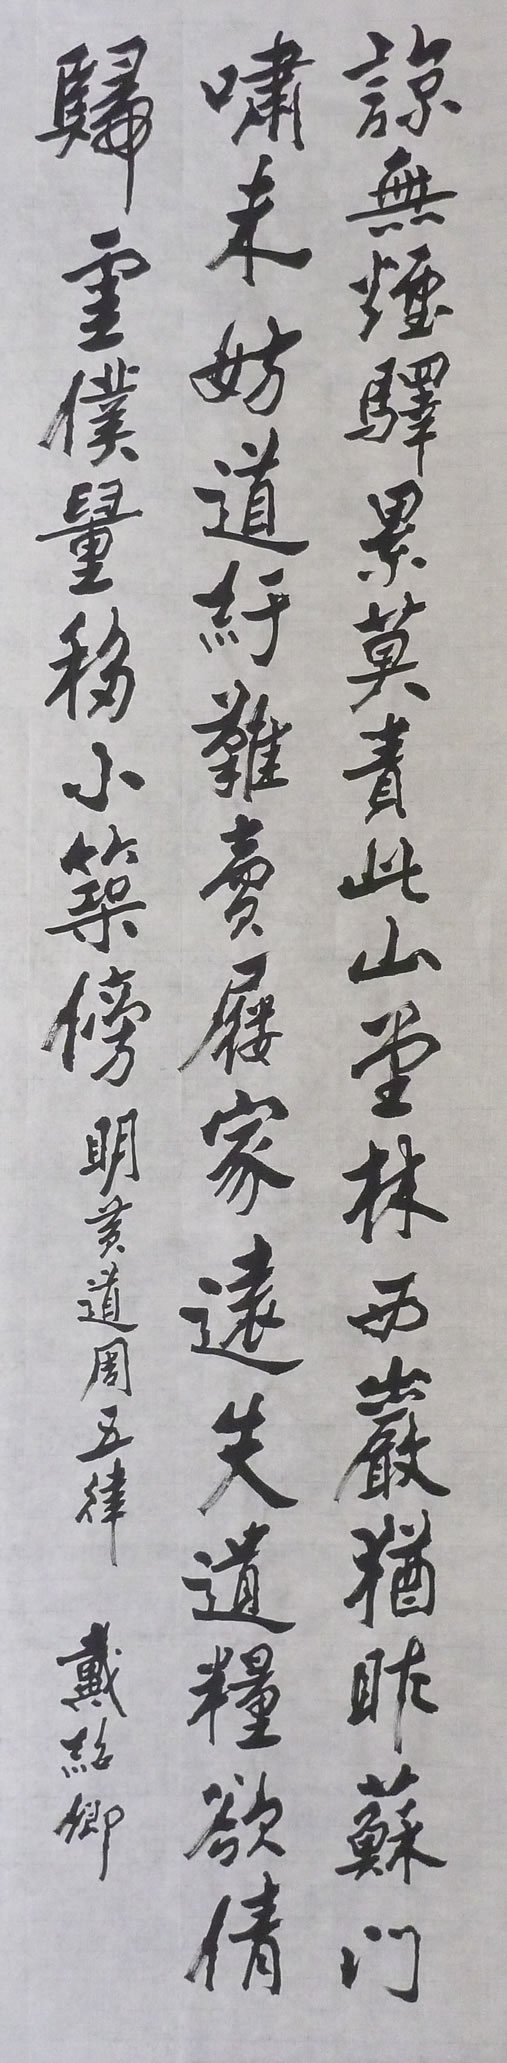 諒無煙驛累莫責此山堂林西巖猶昨蘇門
嘯未妨道紆難賣屨家遠失遺糧欲倩
歸雲僕量移小築傍 明黃道周五律 戴紹卿